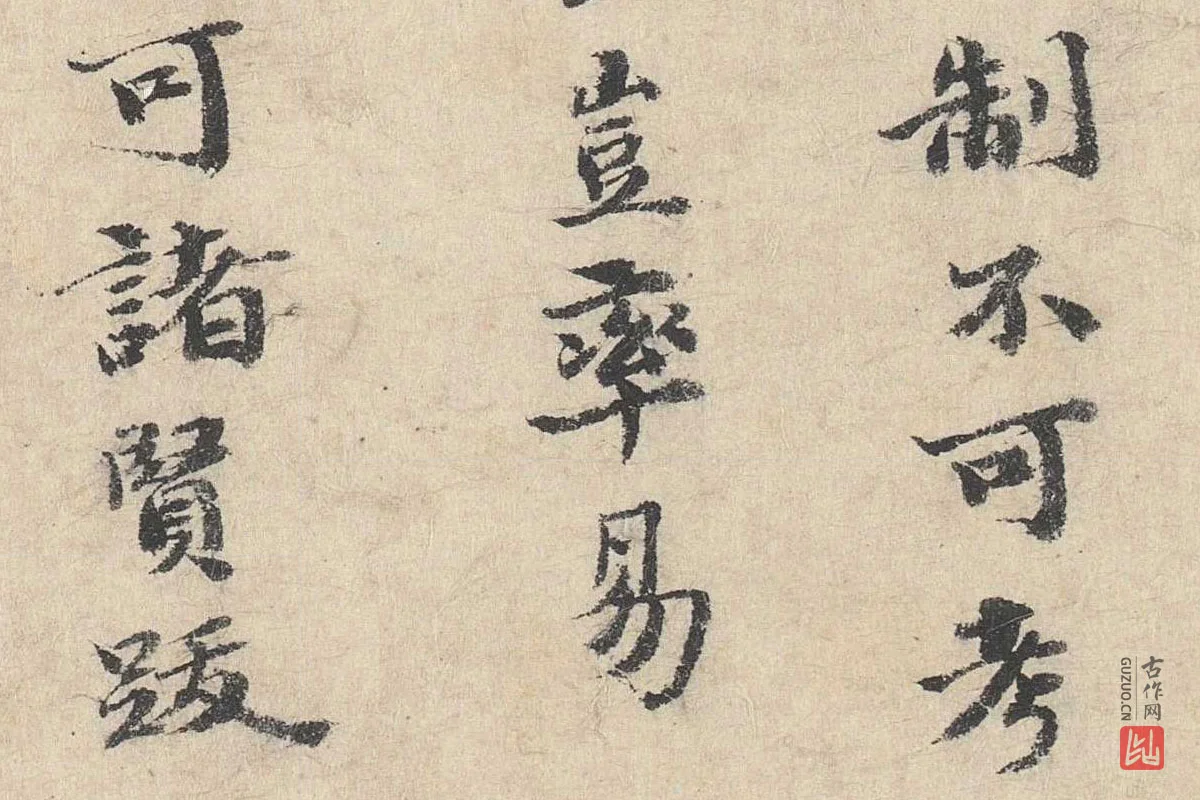 制不可考
豈率易
可諸賢跋
古作网
GUZUO.CN